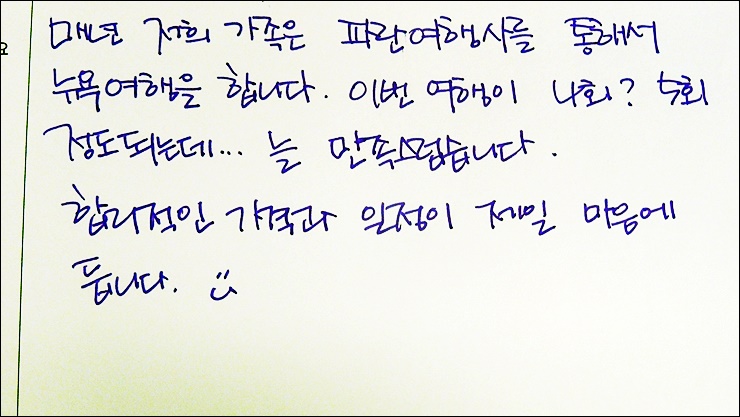 매년 저희 가족은 파란여행사를 통해서
요
뉴욕여행을 합니다. 이번 여행이 4회? 5회
정도되는데... 늘 만족스럽습니다.
합리적인 가격과 일정이 제일 마음에
듭니다.